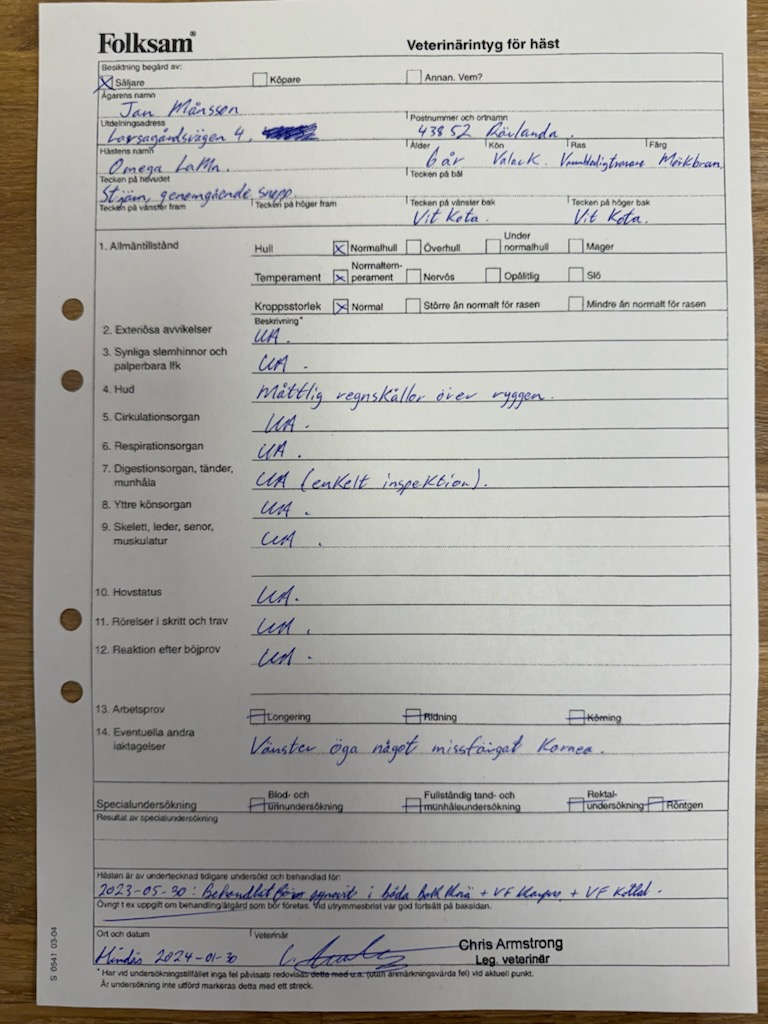 Folksam®
Veterinärintyg för häst
Besiktning begärd av:
Säljare Köpare Annan. Vem?
Ägarens namn
Jan Månsson
Utdelningsadress Postnummer och ortnamn
Larsagårdsvägen 4, 438 52 Rävlanda.
Hästens namn Ålder Kön Ras Färg
Omega LaMa. 6 år Valack. Mörkbrun
Tecken på huvudet Tecken på bål
Stjärn, genomgående snopp.
Tecken på vänster fram Tecken på höger fram Tecken på vänster bak Tecken på höger bak
Vit Kota. Vit Kota.
1. Allmäntillstånd
Hull Normalhull Överhull Under normalhull Mager
Temperament Normaltemperament Nervös Opålitlig Slö
Kroppsstorlek Normal Större än normalt för rasen Mindre än normalt för rasen
Beskrivning*
2. Exteriösa avvikelser UA.
3. Synliga slemhinnor och
palperbara lfk UA.
4. Hud Måttlig regnskållor över ryggen.
5. Cirkulationsorgan UA.
6. Respirationsorgan UA.
7. Digestionsorgan, tänder,
munhåla UA (enkelt inspektion).
8. Yttre könsorgan UA.
9. Skelett, leder, senor,
muskulatur UA.
10. Hovstatus UA.
11. Rörelser i skritt och trav UA.
12. Reaktion efter böjprov UA.
13. Arbetsprov Longering Ridning Körning
14. Eventuella andra
iaktagelser Vänster öga något missfärgat Kornea.
Specialundersökning Blod- och urinundersökning Fullständig tand- och munhåleundersökning Rektal-undersökning Röntgen
Resultat av specialundersökning
Hästen är av undertecknad tidigare undersökt och behandlad för:
2023-05-30: Behandlat för synovit i båda bak knä + VF + VF
Övrigt t ex uppgift om behandling/åtgärd som bör företas. Vid utrymmesbrist var god fortsätt på baksidan.
Ort och datum Veterinär
Hindås 2024-01-30
Chris Armstrong
Leg. veterinär
* Har vid undersökningstillfället inga fel påvisats redovisas detta med u.a. (utan anmärkningsvärda fel) vid aktuell punkt.
Är undersökning inte utförd markeras detta med ett streck.
S 0541 03-04